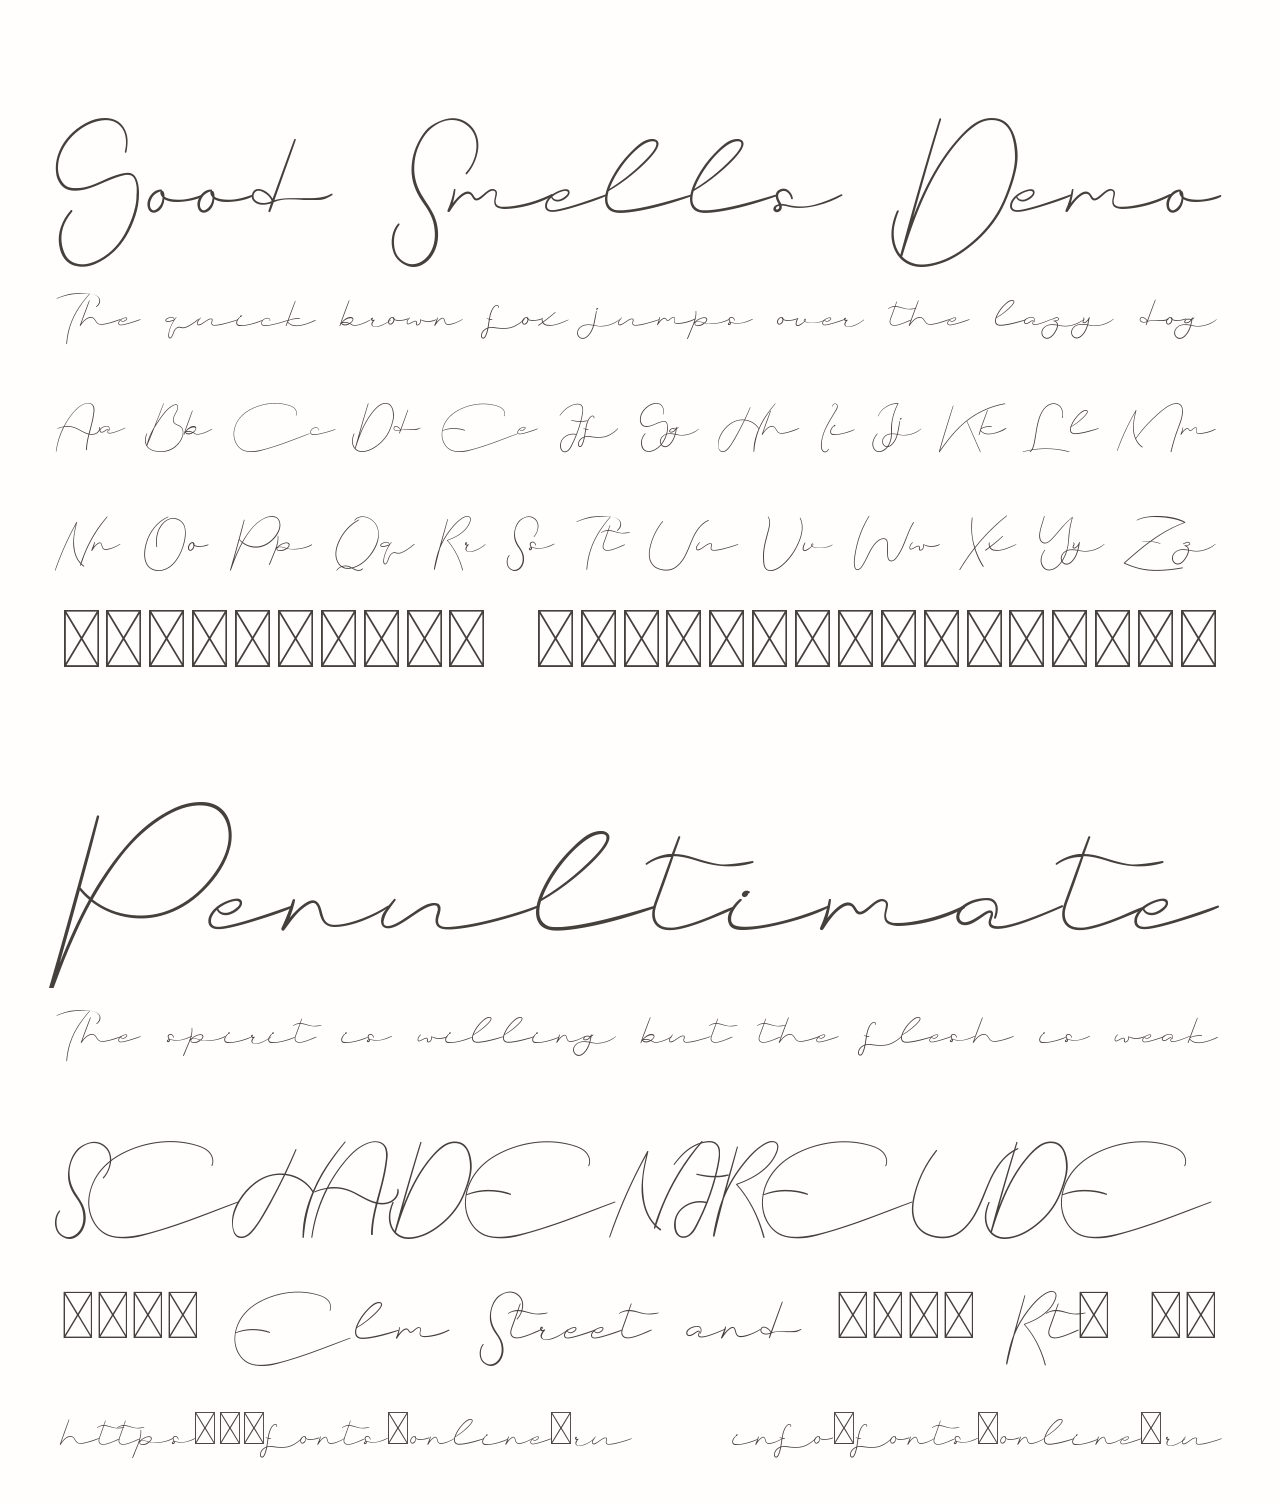 Good Smells Demo
The quick brown fox jumps over the lazy dog
Aa Bb Cc Dd Ee Ff Gg Hh Ii Jj Kk Ll Mm
Nn Oo Pp Qq Rr Ss Tt Uu Vv Ww Xx Yy Zz
Penultimate
The spirit is willing but the flesh is weak
SCHADENFREUDE
Elm Street and Rt
https fonts online ru info fonts online ru